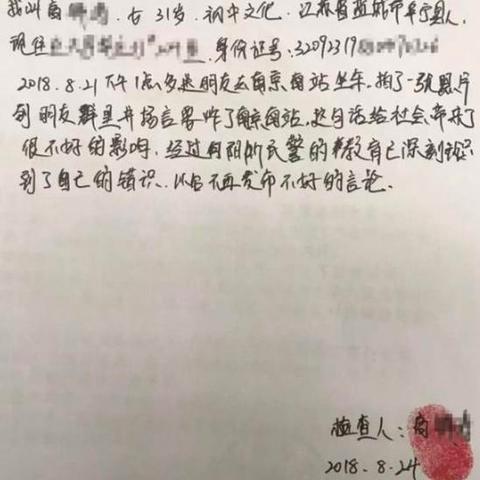 我叫商 , 女 31岁. 初中文化. 江苏省盐城市阜宁县人,
现住 . 身份证号: 32092319
2018.8.21下午1点多送朋友去南京南站坐车. 拍了一张照片
到朋友群里并扬言要炸了南京南站. 这句话给社会带来了
很不好的影响. 经过 派出所民警的教育已深刻认识
到了自己的错误. 以后不再发布不好的言论.
检查人: 商
2018.8.24